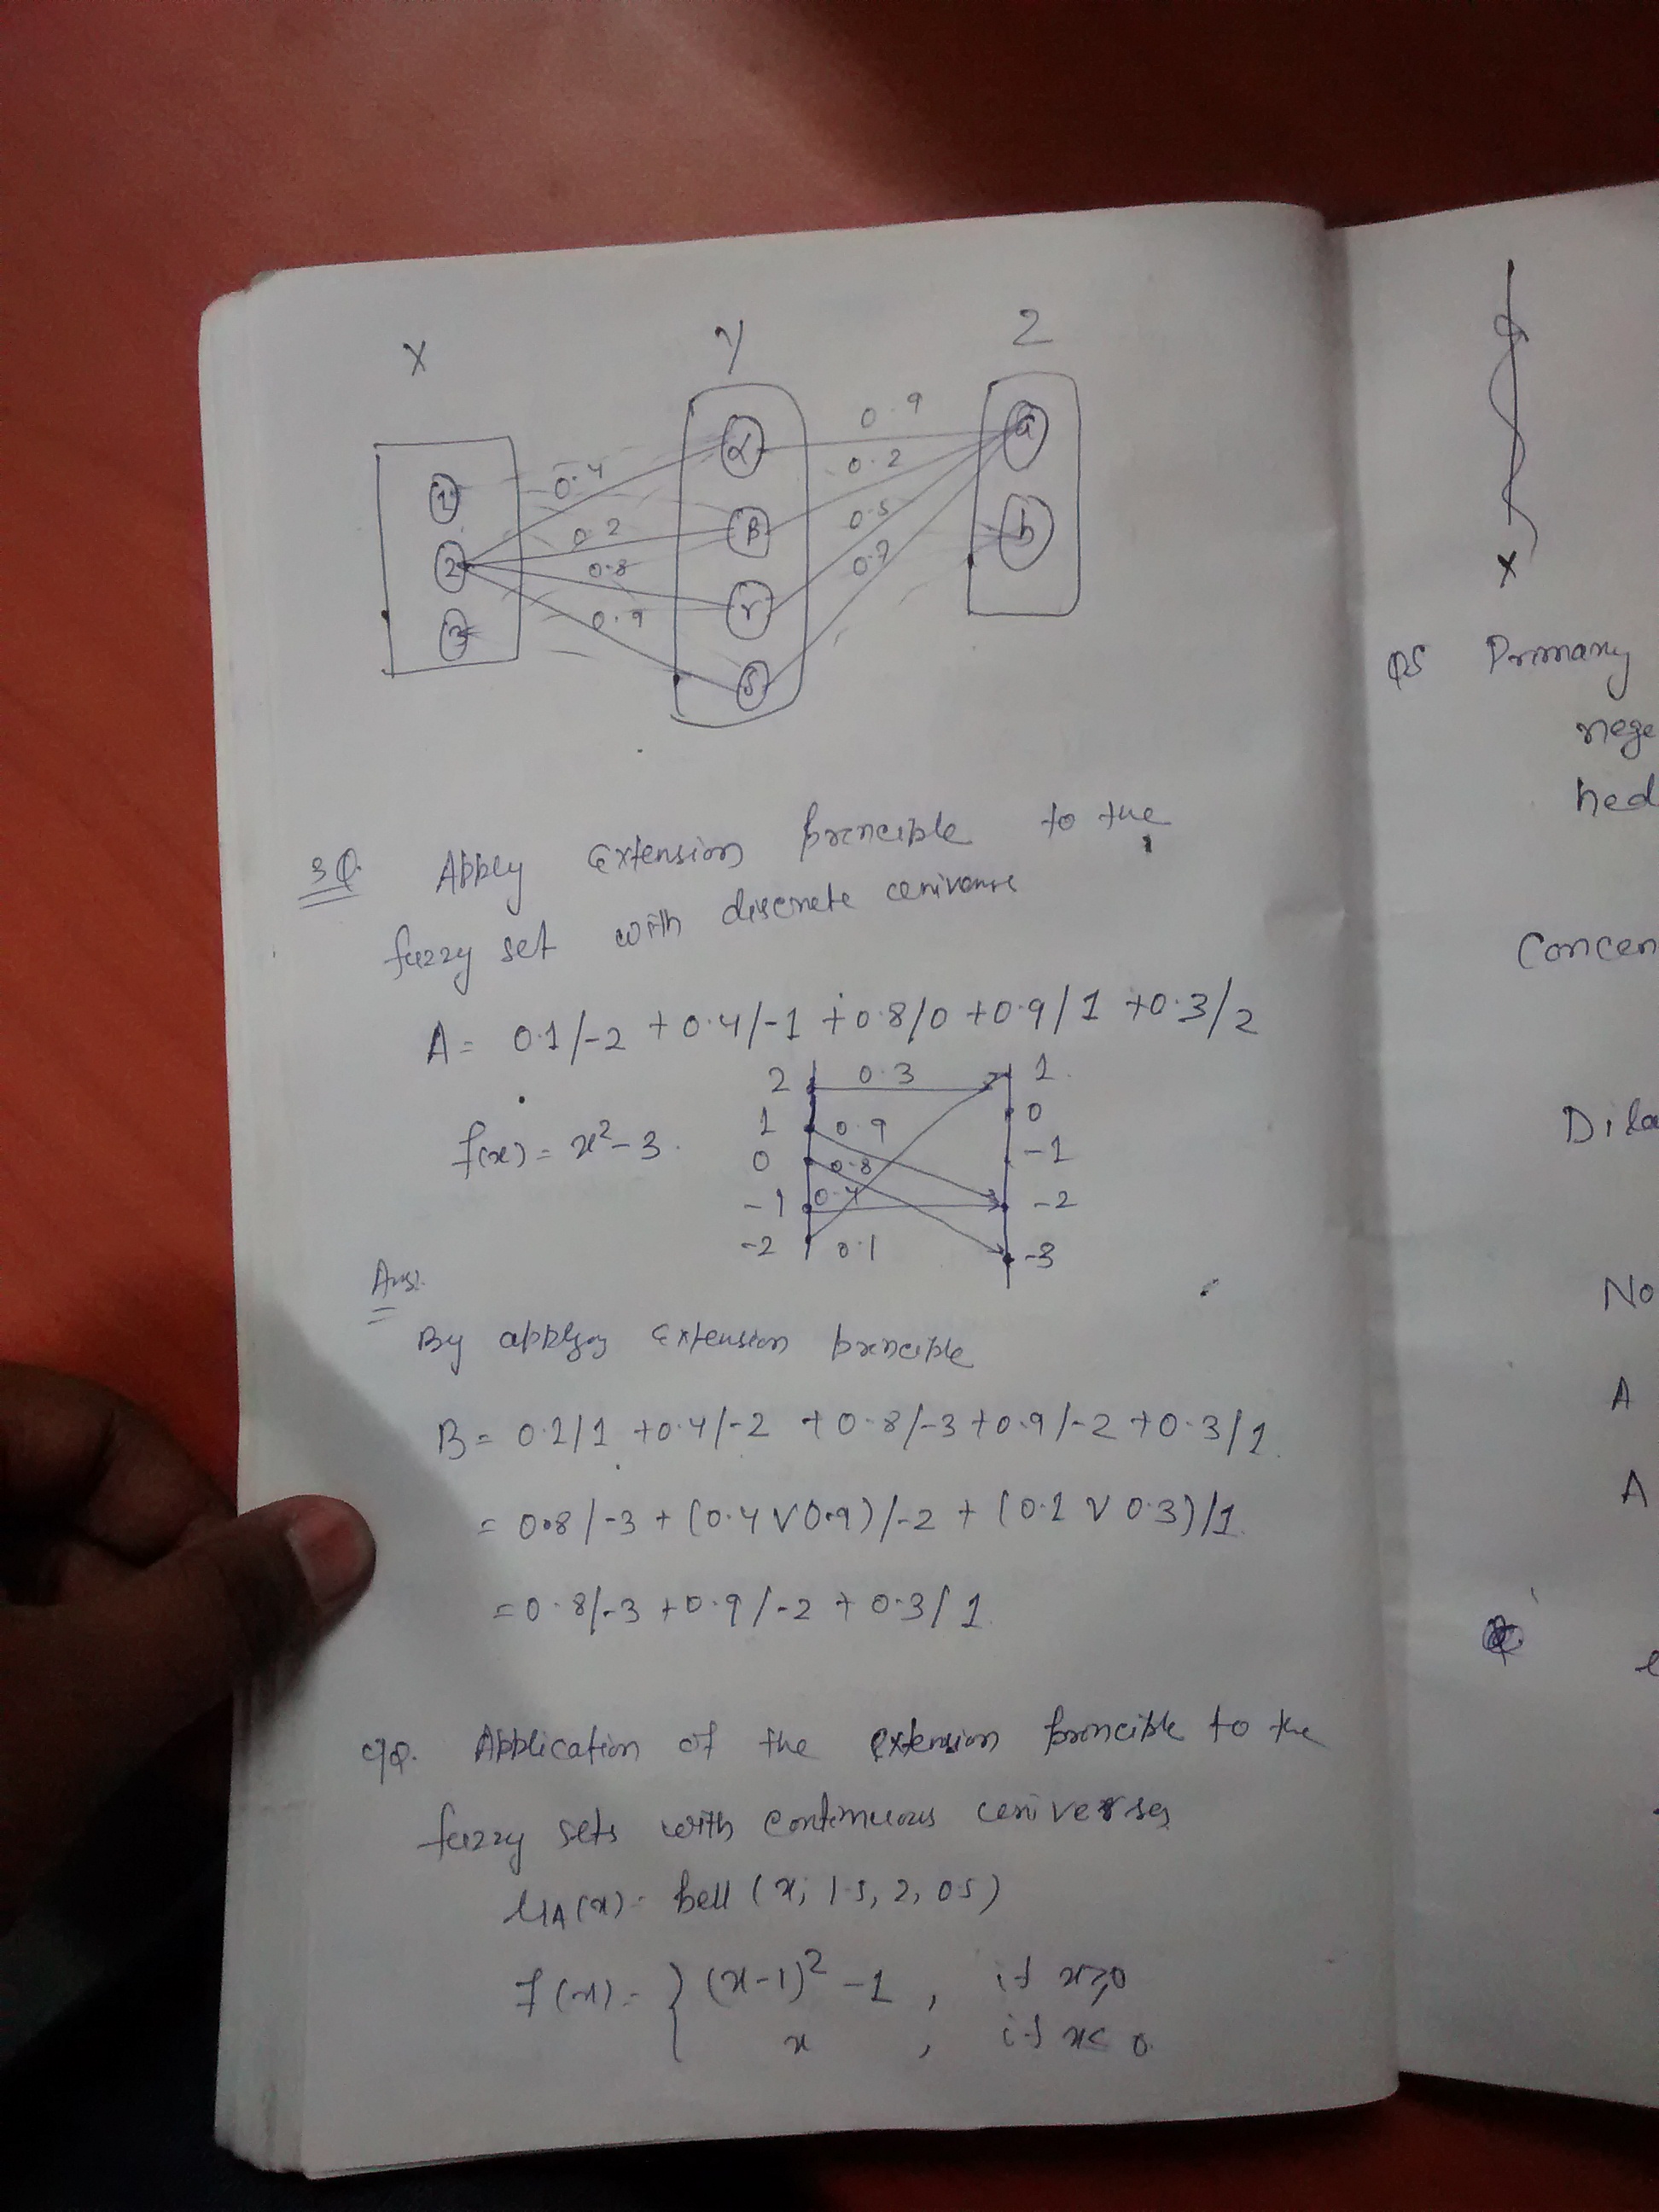 X Y Z
1 2 3
α β γ δ
a b
0.4 0.2 0.8 0.9
0.9 0.2 0.5 0.7
3Q. Apply Extension principle to the
fuzzy set with discrete universe
A = 0.1/-2 + 0.4/-1 + 0.8/0 + 0.9/1 + 0.3/2
f(x) = x² - 3.
2 0.3 1
1 0.9 0
0 0.8 -1
-1 0.4 -2
-2 0.1 -3
Ans.
By applying Extension principle
B = 0.1/1 + 0.4/-2 + 0.8/-3 + 0.9/-2 + 0.3/1.
= 0.8/-3 + (0.4 V 0.9)/-2 + (0.1 V 0.3)/1.
= 0.8/-3 + 0.9/-2 + 0.3/1.
4Q. Application of the extension principle to the
fuzzy sets with continuous universes
μA(x) = bell (x; 1.5, 2, 0.5)
f(x) = { (x-1)² - 1, if x≥0
x, if x≤0.
x
Q5 Primary
nege
hed
Concen
Dila
No
A
A